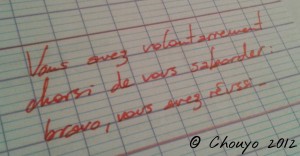 Vous avez volontairement
choisi de vous saborder :
bravo, vous avez réussi.
© Chouyo 2012